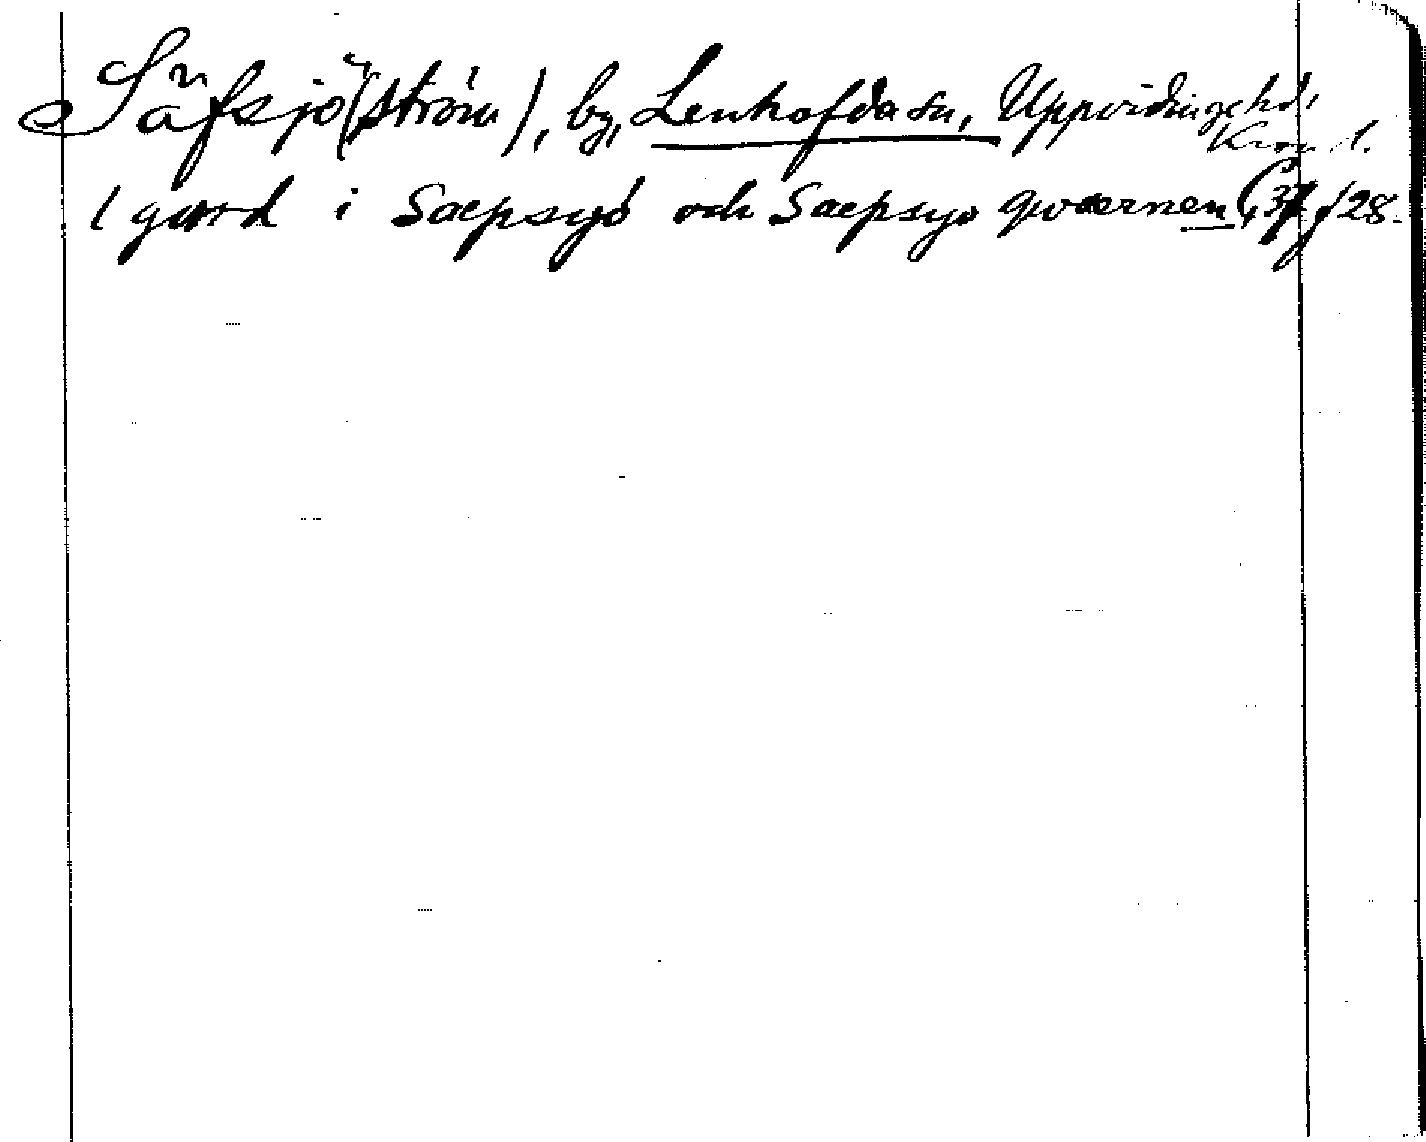 Säfsjö(ström), by, Lenhofda sn, Uppvidinge hd,
Kron. l.
1 gard i Saepsyo och Saepsyo qwaernen